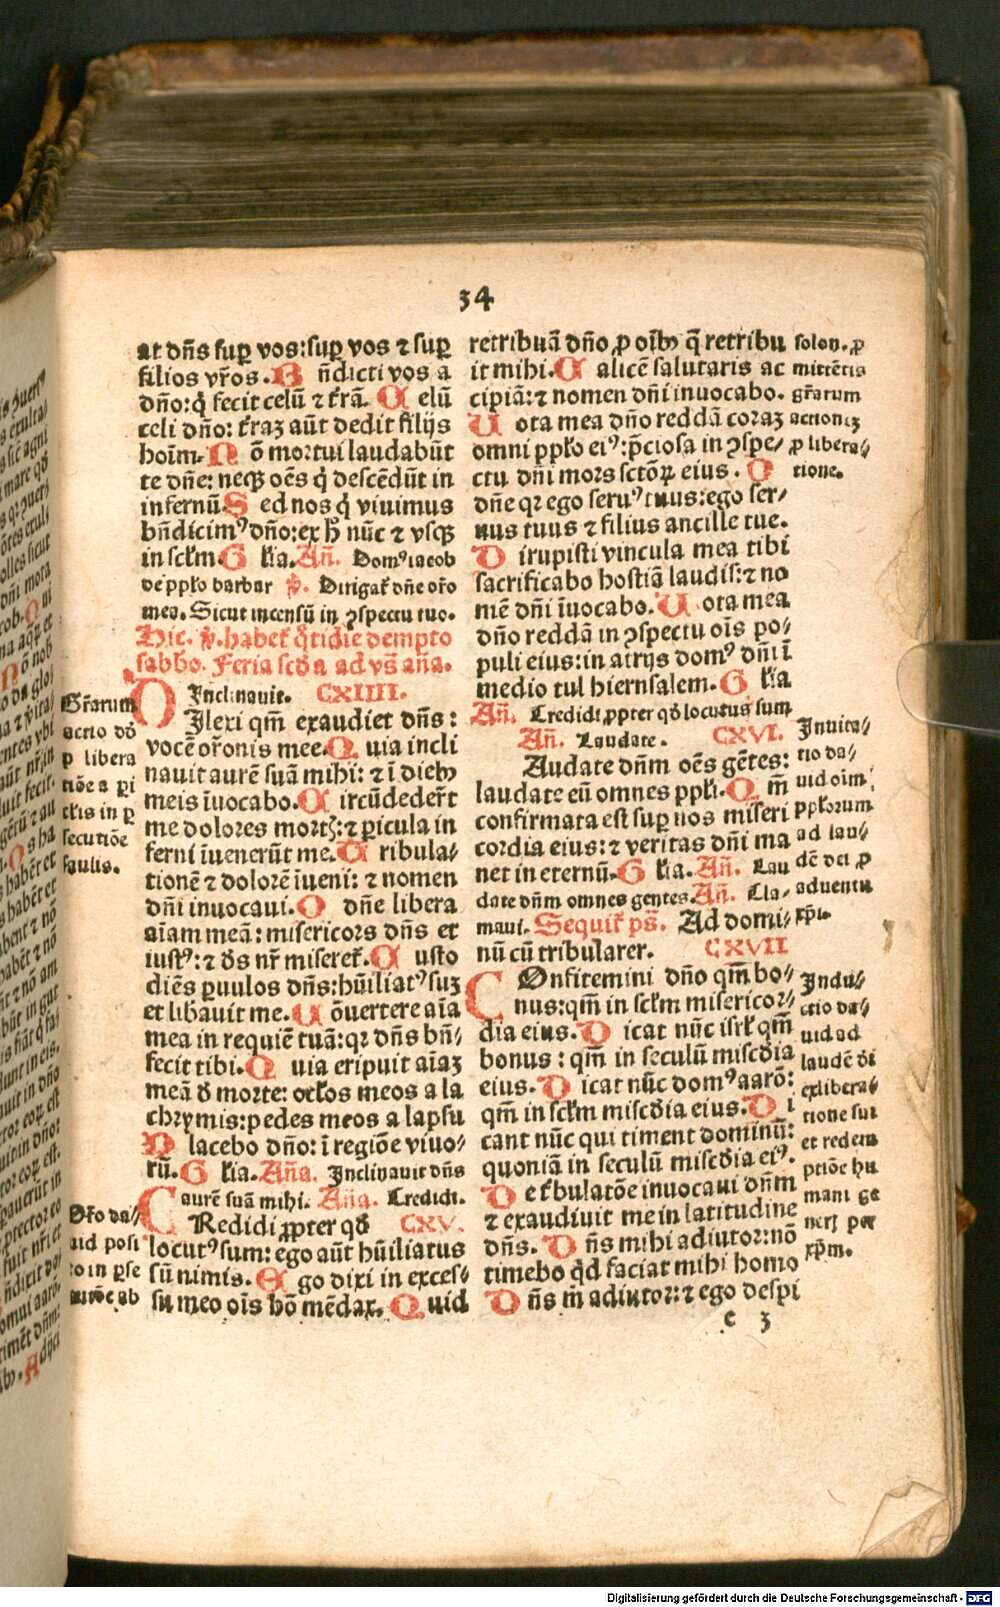 34
at dñs sup vos: sup vos ⁊ sup
filios vr̃os. B ñdicti vos a
dño: q̇ fecit celũ ⁊ t̃rã. C elũ
celi dño: t̃raz aũt dedit filijs
hoĩm. N õ mortui laudabũt
te dñe: neqꝫ oẽs q̇ descẽdũt in
infernũ. S ed nos q̇ viuimus
bñdicimꝰ dño: ex h̃ nũc ⁊ vsqꝫ
in sc̃lm. G lr̃ia. Añ. Domꝰ iacob
de pplo barbar ꝟ. Dirigat̃ dñe or̃o
mea. Sicut incensũ in ꝯspectu tuo.
Hic. ꝟ. habet̃ q̃tidie dempto
sabbo. Feria scđa ad vs̃ aña.
Inclinauit. CXIIII.
D Ilexi qm̃ exaudiet dñs:
vocẽ or̃onis mee. Q uia incli
nauit aurẽ suã mihi: ⁊ ĩ dieb᷒
meis ĩuocabo. C ircũdeder̃t
me dolores mortꝭ: ⁊ ꝑicula in
ferni ĩuenerũt me. T ribula⸗
tionẽ ⁊ dolorẽ ĩueni: ⁊ nomen
dñi inuocaui. O dñe libera
aĩam meã: misericors dñs et
iustꝰ: ⁊ đs nr̃ miseret̃. C usto
diẽs ꝑuulos dñs: hũiliatꝰ suz
et libauit me. C õuertere aĩa
mea in requiẽ tuã: qꝛ dñs bñ⸗
fecit tibi. Q uia eripuit aĩaz
meã đ morte: oc̃los meos a la
chrymis: pedes meos a lapsu
P lacebo dño: ĩ regiõe viuo⸗
rũ. G lr̃ia. Aña. Inclinauit dñs
aurẽ suã mihi. Aña. Credidi.
C Redidi ꝓpter qđ CXV.
locutꝰ sum: ego aũt hũiliatus
sũ nimis. E go dixi in exces⸗
su meo oĩs hõ mẽdax. Q uid
Gr̃arum
actio dđ
ꝓ libera
tiõe a ꝑi
clis in ꝑ
secutiõe
saulis.
Or̃o da⸗
uid posi
to in ꝑse
cutiõe ab
retribuã dño ꝓ oĩb᷒ q̃ retribu
it mihi. C alicẽ salutaris ac
cipiã: ⁊ nomen dñi inuocabo.
U ota mea dño reddã coraz
omni pplo eiꝰ: p̃ciosa in ꝯspe⸗
ctu dñi mors sctõꝝ eius. O
dñe qꝛ ego seruꝰ tuus: ego ser⸗
uus tuus ⁊ filius ancille tue.
D irupisti vincula mea tibi
sacrificabo hostiã laudis: ⁊ no
mẽ dñi ĩuocabo. U ota mea
dño reddã in ꝯspectu oĩs po⸗
puli eius: in atrijs domꝰ dñi ĩ
medio tui hierusalem. G lr̃ia
Añ. Credidi ꝓpter qđ locutus sum
Añ. Laudate. CXVI.
Audate dñm oẽs gẽtes:
laudate eũ omnes ppli. Q m̃
confirmata est sup nos miseri
cordia eius: ⁊ veritas dñi ma
net in eternũ. G lr̃ia. Añ. Lau
date dñm omnes gentes. Añ. Cla⸗
maui. Sequit̃ ps̃. Ad domi⸗
nũ cũ tribularer. CXVII
C Onfitemini dño qm̃ bo⸗
nus: qm̃ in sc̃lm misericor⸗
dia eius. D icat nũc isrl̃ qm̃
bonus: qm̃ in seculũ misc̃dia
eius. D icat nũc domꝰ aarõ:
qm̃ in sc̃lm misc̃dia eius. D i
cant nũc qui timent dominũ:
quoniã in seculũ misc̃dia eiꝰ.
D e t̃bulatõe inuocaui dñm
⁊ exaudiuit me in latitudine
dñs. D ñs mihi adiutor: nõ
timebo qd̃ faciat mihi homo
D ñs m̃ adiutor: ⁊ ego despi
solon. ꝓ
mittẽtis
gr̃arum
actionẽ
ꝓ libera⸗
tione.
Inuita⸗
tio da⸗
uid oĩm
pplorum
ad lau⸗
dẽ dei ꝓ
aduentu
xp̃i.
Indu⸗
ctio da⸗
uid ad
laudẽ đi
ex libera⸗
tione sui
et redem
ptiõe hu
mani ge
neris per
xp̃m.
e 3
Digitalisierung gefördert durch die Deutsche Forschungsgemeinschaft - DFG